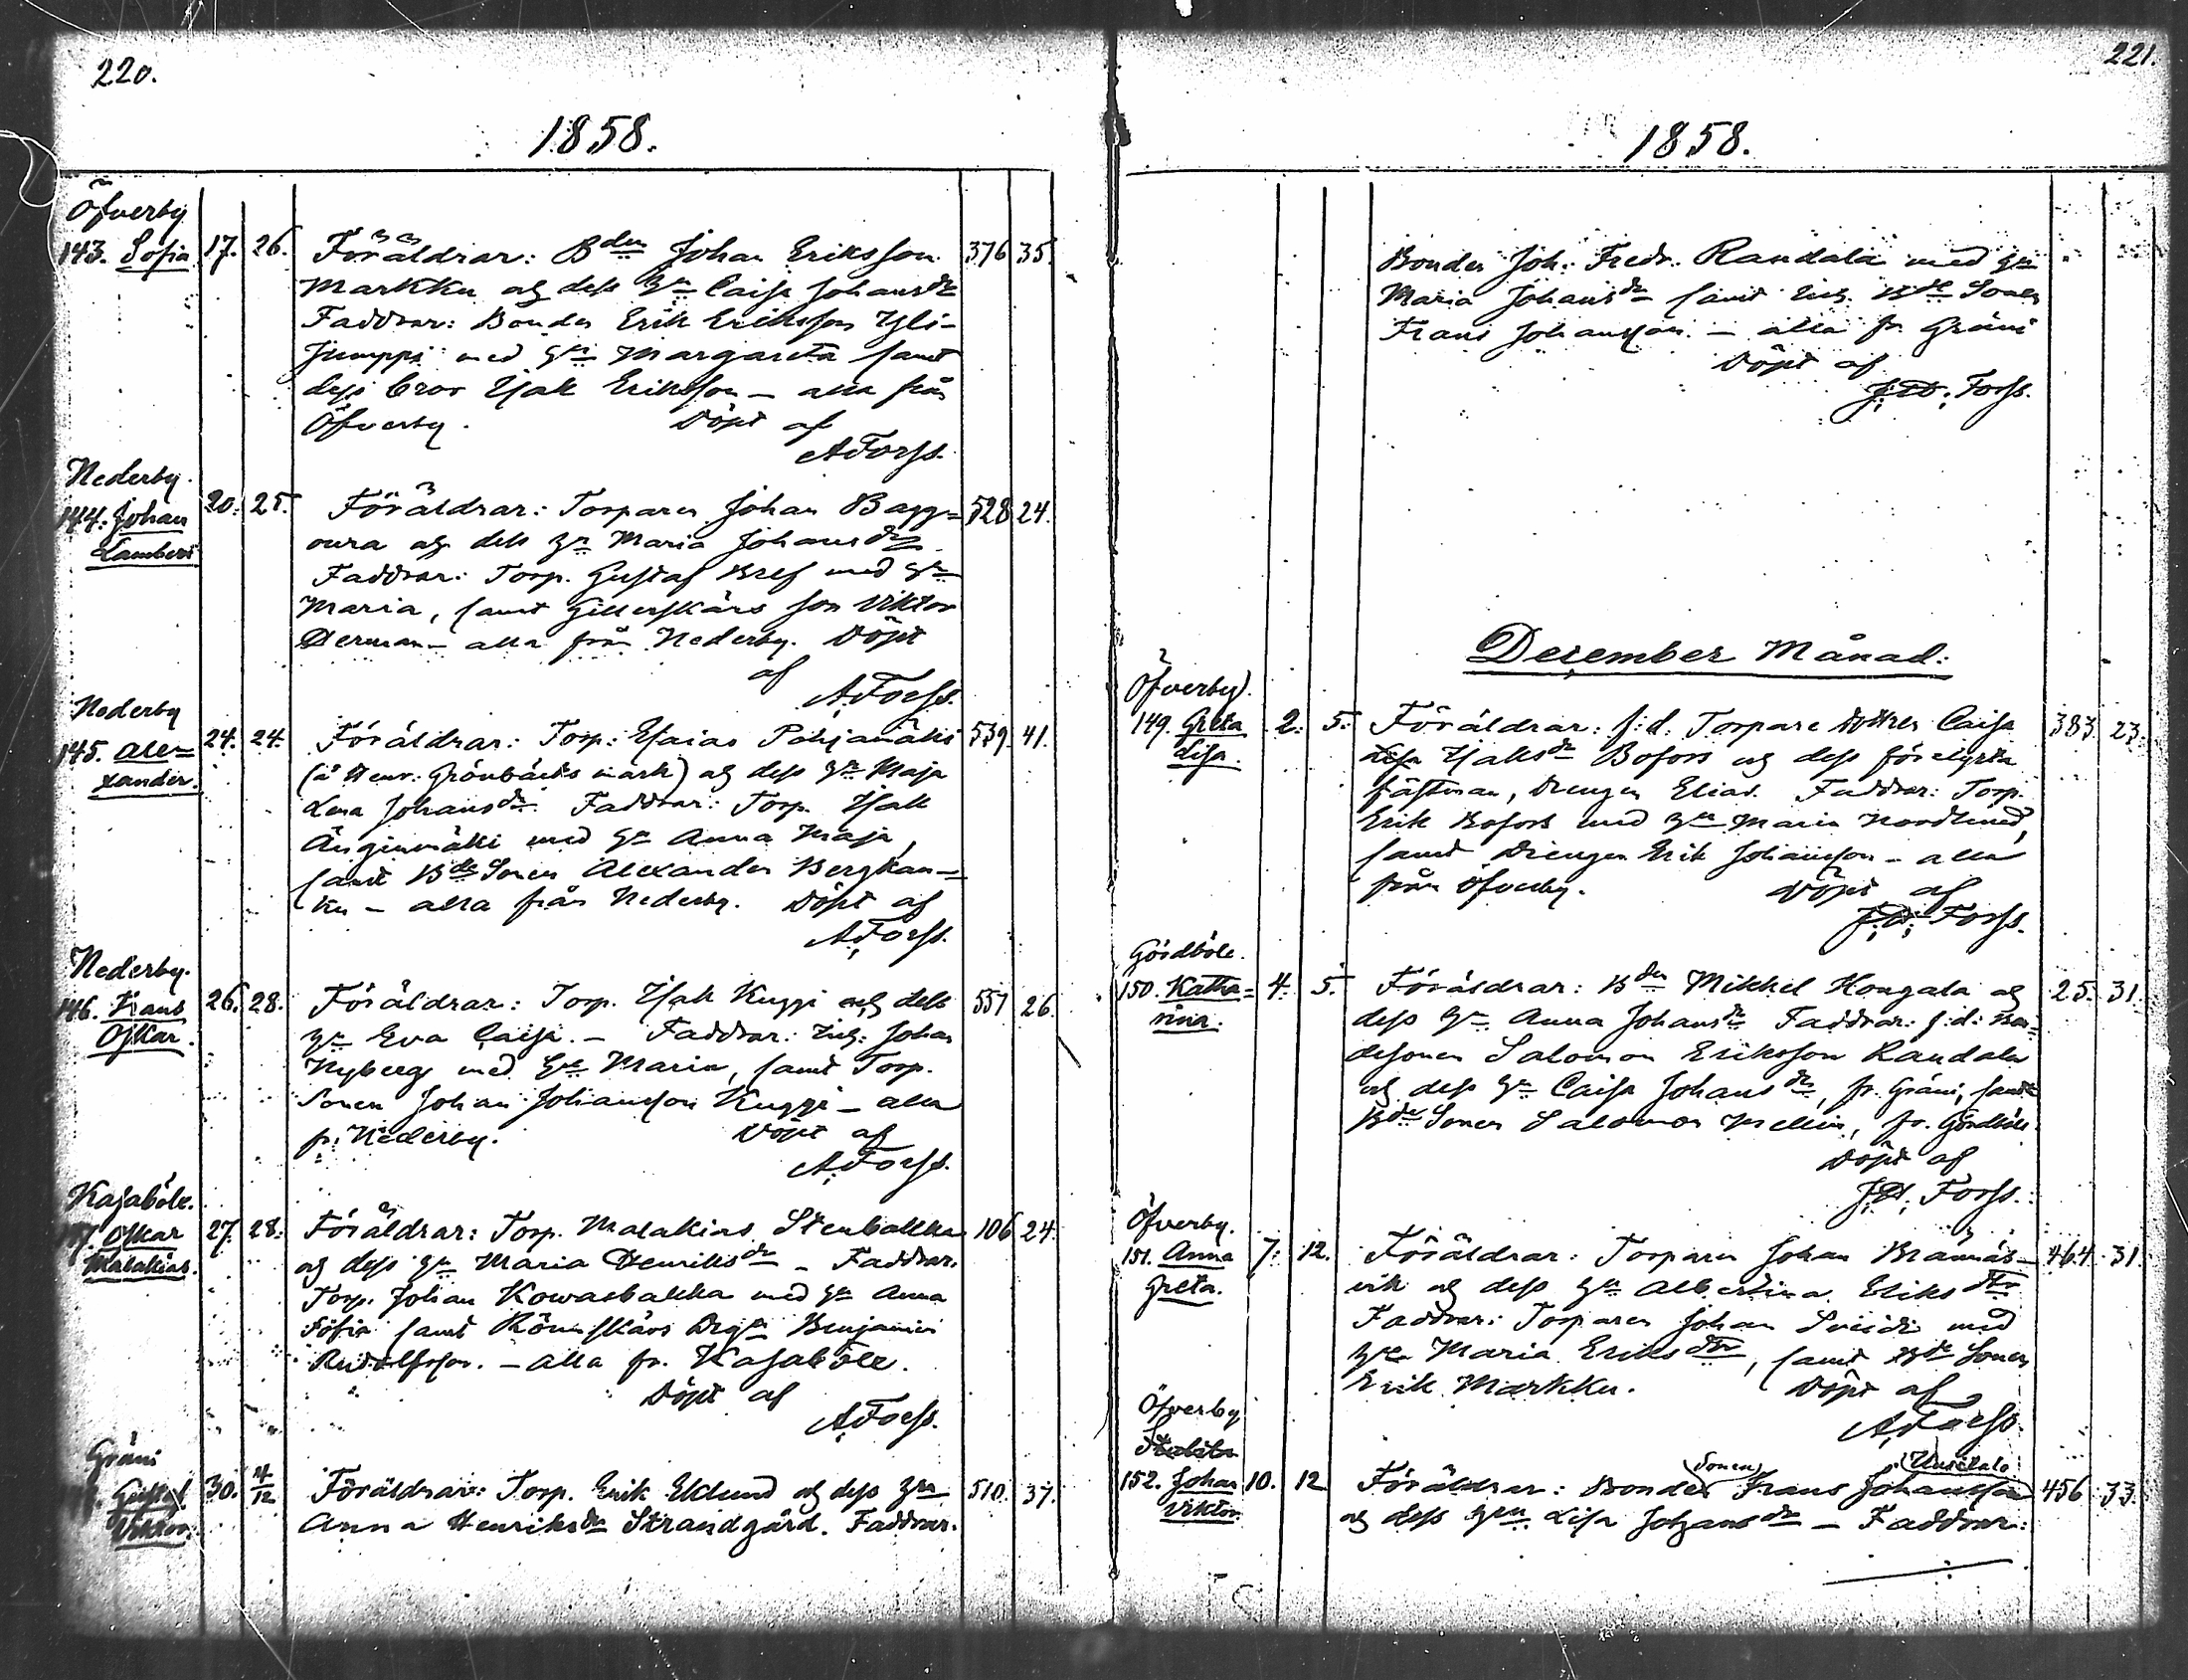 220.
1858.
Öfverby
143. Sofia 17. 26. Föräldrar: Bden Johan Eriksson 376 35.
Markku og dess Hu Caisa Johansdr
Faddrar: Bonden Erik Eriksson Yli-
Jumppi med Hu Margareta samt
dess bror Isak Eriksson – alla från
Öfverby. Döpt af
A.Forss.
Nederby.
144. Johan 20. 25. Föräldrar: Torparen Johan Bagg- 528 24.
Lambert
oura og dess Hu Maria Johansdr
Faddrar: Torp. Gustaf Bref med Hu
Maria, samt son Viktor
Herman – alla från Nederby. Döpt
af
A.Forss.
Nederby
145. Ale- 24. 24. Föräldrar: Torp: Esaias Pohjamäki 539. 41.
xander.
(å Henr: Grönbäcks mark) og dess Hu Maja
Lena Johansdr Faddrar: Torp. Isak
Änginmäki med Hu Anna Maja,
samt Bde Sonen Alexander Bergkan-
ku – alla från Nederby. Döpt af
A.Forss.
Nederby.
146. Frans 26. 28. Föräldrar: Torp. Isak Kuppi og dess 551 26.
Oskar.
Hu Eva Caisa. – Faddrar: Johan
Nyberg med Hu Maria, samt Torp.
Sonen Johan Johansson Kuppi – alla
fr. Nederby. Döpt af
A.Forss.
Kasaböle.
Oskar 27. 28. Föräldrar: Torp. Malakias Stenbakka 106 24.
Malakias.
og dess Hu Maria Henriksdr – Faddrar.
Torp. Johan Kowasbakka med Hu Anna
Sofia samt Benjamin
Rudolfsson. – alla fr. Kasaböle.
Döpt af
A.Forss.
Gräni
Gustaf 30. 4/12 Föräldrar: Torp. Erik Eklund og dess Hu 510. 37.
Viktor.
Anna Henriksdr Strandgård. Faddrar.
221.
1858.
Bonden Joh: Fredr. Randala med Hu
Maria Johansdr samt Bde Sonen
Frans Johansson – alla fr. Gräni
Döpt af
J.D. Forss.
December Månad.
Öfverby.
149. Greta 2. 5. Föräldrar: f: d: Torpare dottren Caisa 383. 23.
Lisa.
Lisa Isaksdr Bofors og dess förelysta
fästman, Drengen Elias. Faddrar: Torp.
Erik Bofors med Hu Maria
samt Drengen Erik Johansson – alla
från Öfverby. Döpt af
J.D. Forss.
Gördböle.
150. Katha- 4. 5. Föräldrar: Bden Mikkel Hongala og 25. 31.
rina.
dess Hu Anna Johansdr Faddrar: f: d: Bon-
desonen Salomon Eriksson Randala
og dess Hu Caisa Johansdr, fr. Gräni, samt
Bde Sonen Salomon fr. Gördböle.
Döpt af
J.D. Forss.
Öfverby.
151. Anna 7. 12. Föräldrar: Torparen Johan Brännäs- 464. 31.
Greta.
vik og dess Hu Albertina Eriksdtr
Faddrar: Torparen Johan med
Hu Maria Eriksdtr, samt Bde Sonen
Erik Markku. Döpt af
A.Forss.
Öfverby
152. Johan 10. 12 Föräldrar: Bonde (Sonen) Frans Johansson 456 33.
Viktor
og dess Hu Lisa Johansdr – Faddrar: